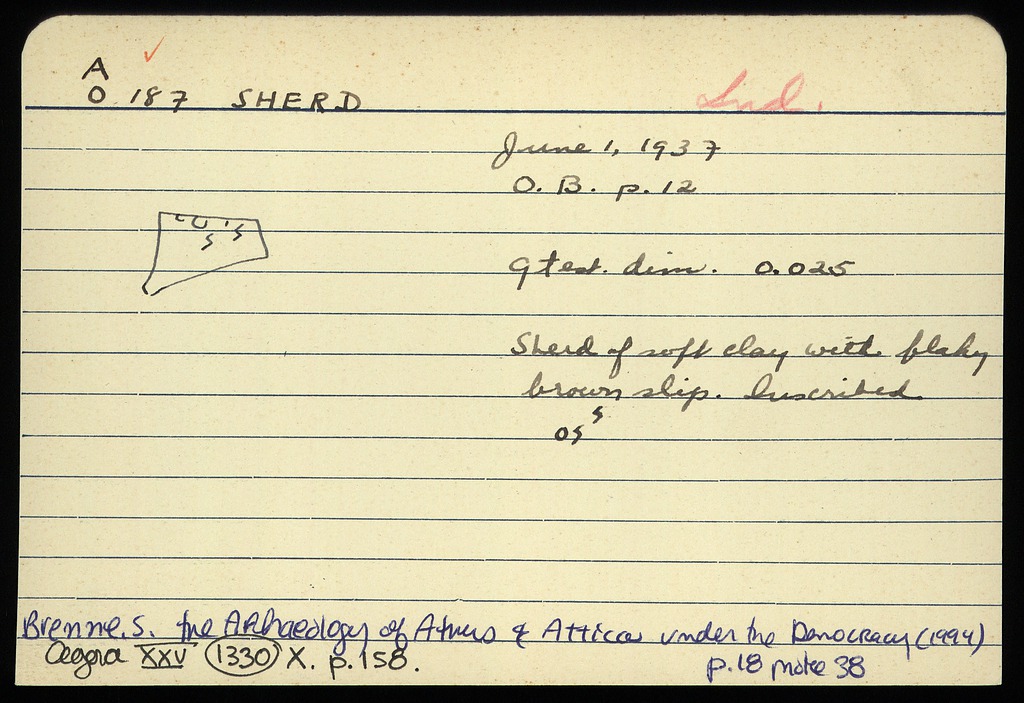 A
O 187 SHERD
Ind.
June 1, 1937
O. B. p. 12
gtest. dim. 0.025
Sherd of soft clay with flaky
brown slip. Inscribed
s
os
Brenne, S. the Archaeology of Athens & Attica under the Democracy (1994)
p.18 note 38
Agora XXV 1330 X. p. 158.